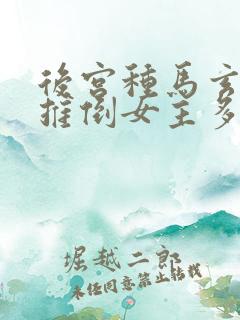 後宮種馬玄
推倒女主多
堀越二郎
未经同意禁止转载